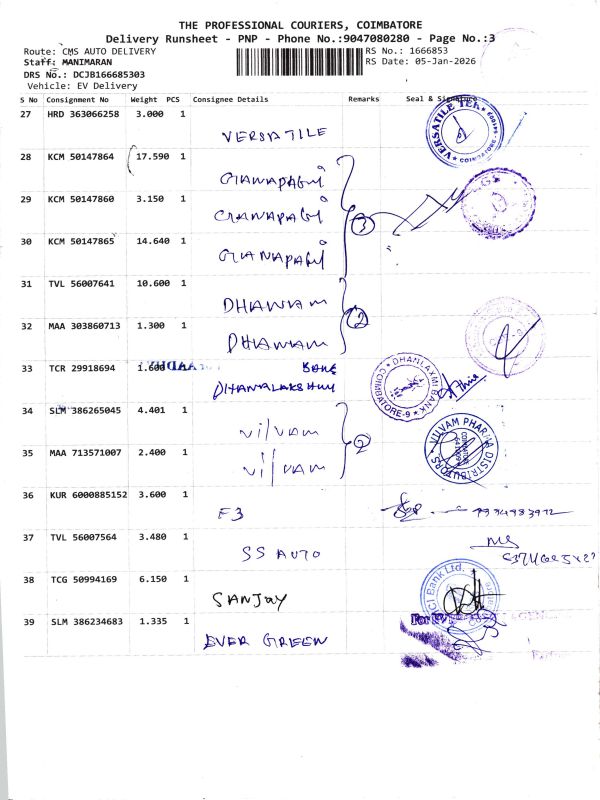 THE PROFESSIONAL COURIERS, COIMBATORE
Delivery Runsheet - PNP - Phone No.:9047080280 - Page No.:3
Route: CMS AUTO DELIVERY
RS No.: 1666853
Staff: MANIMARAN
RS Date: 05-Jan-2026
DRS No.: DCJB166685303
Vehicle: EV Delivery
S No Consignment No Weight PCS Consignee Details Remarks Seal & Signature
27 HRD 363066258 3.000 1 VERSATILE
VERSATILE COIMBATORE
28 KCM 50147864 17.590 1 GANAPAGY
29 KCM 50147860 3.150 1 GANAPAGY 3
30 KCM 50147865 14.640 1 GANAPAGY
31 TVL 56007641 10.600 1 DHANAM
2
32 MAA 303860713 1.300 1 DHANAM
33 TCR 29918694 1.600 1 BANK
DHANALAKSHMY
DHANLAXMI BANK COIMBATORE-9
34 SLM 386265045 4.401 1 VILVAM
2
VILVAM PHARMA DISTRIBUTORS
35 MAA 713571007 2.400 1 VILVAM
36 KUR 6000885152 3.600 1 F3
37 TVL 56007564 3.480 1 SS AUTO
38 TCG 50994169 6.150 1 SANJAY
ICICI Bank Ltd.
39 SLM 386234683 1.335 1 EVER GREEN
For